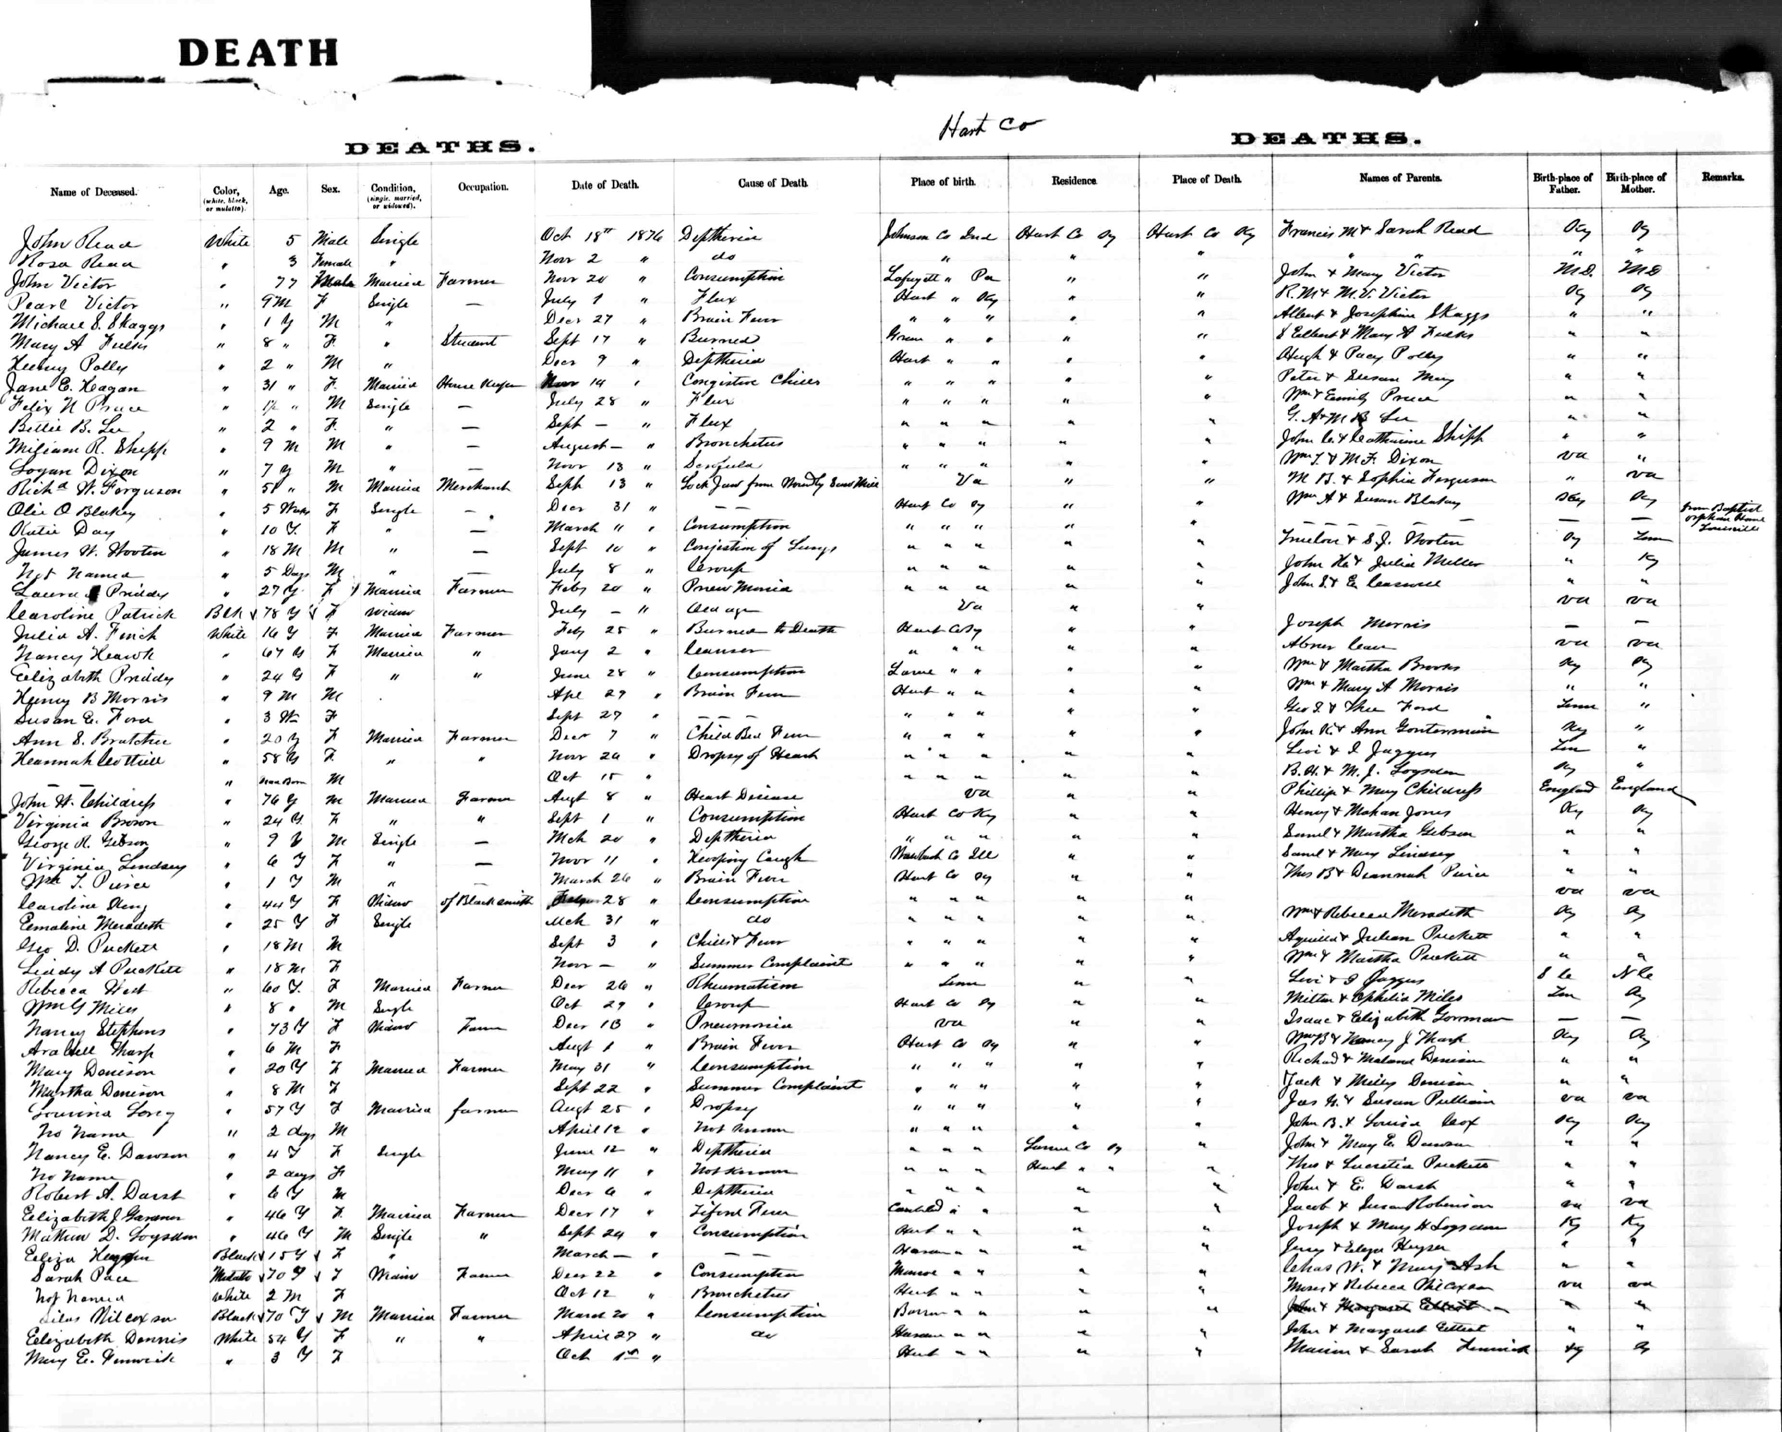 DEATH
Hart Co
DEATHS. DEATHS.
Name of Deceased. Color, (white, black, or mulatto). Age. Sex. Condition, (single, married, or widowed). Occupation. Date of Death. Cause of Death. Place of birth. Residence. Place of Death. Names of Parents. Birth-place of Father. Birth-place of Mother. Remarks.
John Read White 5 Male Single Oct 18th 1876 Deptheria Johnson Co Ind Hart Co Ky Hart Co Ky Francis M & Sarah Read Ky Ky
Rosa Read " 3 Female " Novr 2 " do " " " " " " "
John Victor " 77 Married Farmer Novr 20 " Consumption Lafayett " Pa " " John & Mary Victor Md. Md
Pearl Victor " 9 M F Single — July 1 " Flux Hart " Ky " " R. M & M. V. Victor Ky Ky
Michael S. Skaggs " 1 Y M " Decr 27 " Brain Fever " " " " " Albert & Josephine Skaggs " "
Mary A " 8 " F " Student Sept 17 " Burned Green " " " " " "
Henry Polly " 2 " M " Decr 9 " Deptheria Hart " " " " Hugh & Polly " "
Jane E. Hagan " 31 " F. Married House Keeper 14 " Congistive Chills " " " " " Peter & Susan May " "
Felix N " M Single — July 28 " Flux " " " " " Wm & Emily " "
Billie B. Lee " 2 " F. " — Sept — " Flux " " " " " G. A & M B Lee " "
William R. Shipp " 9 M M " — August — " Bronchetus " " " " " John C. & Catharine Shipp " "
Logan Dixon " 7 Y M " — Novr 13 " Scrofula " " " " " Wm T. & M. F. Dixon Va "
Richd W. Ferguson " 51 " M Married Merchant Sept 13 " Lock Jaw from Va " " M B. & Sophia Ferguson " Va
Olie O Blakey " 5 Weeks F Single — Decr 31 " — — Hart Co Ky " " Wm A & Susan Blakey Ky Ky from Baptist orphan Home Louisville
Katie Day " 10 Y. F " — March 11 " Consumption " " " " " — — — — — — —
James W. Wooten " 18 M M " — Sept 10 " Conjistion of Lungs " " " " " & S. J. Wooten Ky Tenn
Not Named " 5 Days M " — July 8 " Croup " " " " " John H. & Julia Miller " Ky
Laura Priddy " 27 Y F Married Farmer Feby 20 " Pneumonia " " " " " John S. & E. Caswell " "
Caroline Patrick Blk 78 Y F Widow July — " Old age Va " " Va Va
Julia A. Finch White 16 Y F Married Farmer Feby 25 " Burned to Death Hart Co Ky " " Joseph Morris — —
Nancy " 67 Y F Married " Jany 2 " Canser " " " " " Abner Va Va
Elizabeth Priddy " 24 Y F " " June 28 " Consumption Larue " " " " Wm & Martha Brooks Ky Ky
Henry B Morris " 9 M M Apl 29 " Brain Fever Hart " " " " Wm & Mary A Morris " "
Susan E. Ford " 3 W F Sept 27 " — — — " " " " " Geo S. & Ford Tenn "
Ann S. Bratcher " 20 Y F Married Farmer Decr 7 " Child Bed Fever " " " " " John K. & Ann Ky "
Hannah Cottrell " 58 Y F " " Novr 24 " Dropsy of Heart " " " " " Levi & I Jaggers Ten "
— — " New Born M Oct 15 " " " " " " B. H. & M. J. Logsdon Ky "
John W. Childress " 76 Y M Married Farmer Augt 8 " Heart Disease Va " " Phillip & Mary Childress England England
Virginia Brown " 24 Y. F " " Sept 1 " Consumption Hart Co Ky " " Henry & Mahan Jones Ky Ky
George R. Gibson " 9 Y M Single — Mch 20 " Deptheria " " " " " Saml & Martha Gibson " "
Virginia Lindsey " 6 Y F " — Novr 11 " Hooping Cough Co Ill " " Saml & Mary Lindsey " "
Wm T. Pierce " 1 Y M " — March 26 " Brain Fever Hart Co Ky " " Thos B & Pierce " "
Caroline King " 44 Y F Widow of Blacksmith 28 " Consumption " " " " " Va Va
Emaline Meradeth " 25 Y F Single Mch 31 " do " " " " " Wm & Rebecca Meradeth Ky Ky
Geo D. Puckett " 18 M M Sept 3 " Chill & Fever " " " " " & Julian Puckett " "
Liddy A Puckett " 18 M F Novr — " Summer Complaint " " " " " Wm & Martha Puckett " "
Rebecca West " 60 Y. F Married Farmer Decr 26 " Rheumatism Tenn " " Levi & I Jaggers S Ca N Ca
Wm G Miles " 8 " M Single Oct 29 " Croup Hart Co Ky " " Milton & Ophelia Miles Ten Ky
Nancy Stephens " 73 Y F Widow Farmer Decr 13 " Pneumonia Va " " Isaac & Elizabeth Gorman — —
Arabell Tharp " 6 M F Augt 1 " Brain Fever Hart Co Ky " " Wm B & Nancy J Tharp Ky Ky
Mary Denison " 20 Y F Married Farmer May 31 " Consumption " " " " " Richard & Denison " "
Martha Denison " 8 M F Sept 22 " Summer Complaint " " " " " Jack & Milly Denison " "
Long " 57 Y F Married farmer Augt 25 " Dropsy " " " " " Jas H. & Susan Pulliam Va Va
No Name " 2 days M April 12 " Not Known " " " " " John B. & Louisa Cox Ky Ky
Nancy E. Dawson " 4 Y F Single June 12 " Deptheria " " " Larue Co Ky " John & Mary E. Dawson " "
No Name " 2 days F May 11 " Not Known " " " Hart " " " Thos & Lucretia Puckett " "
Robert A. Darst " 6 Y M Decr 6 " Deptheria " " " " " John & E. Darst " "
Elizabeth J. Gardner " 46 Y F Married Farmer Decr 17 " Tifoid Fever " " " " Jacob & Susan Robinson Va Va
D. Logsdon " 46 Y M Single " Sept 24 " Consumption Hart " " " " Joseph & Mary H Logsdon Ky Ky
Eliza Black 15 Y F " March — " — — " " " " Jerry & Eliza " "
Sarah Pace Mulatto 70 Y F Widow Farmer Decr 22 " Consumption Monroe " " " " Chas W. & Mary Ash " "
Not Named White 2 M F Oct 12 " Bronchetus Hart " " " " Moses & Rebecca Wilcoxson Va Va
Silas Wilcoxson Black 70 Y M Married Farmer March 20 " Consumption Barren " " " " John & Margaret Elliott " "
Elizabeth Dennis White 54 Y F " " April 27 " do " " " " John & Margaret Elliott " "
Mary E. Fenwick " 3 Y F Oct 1st " Hart " " " " Marion & Sarah Fenwick Ky Ky